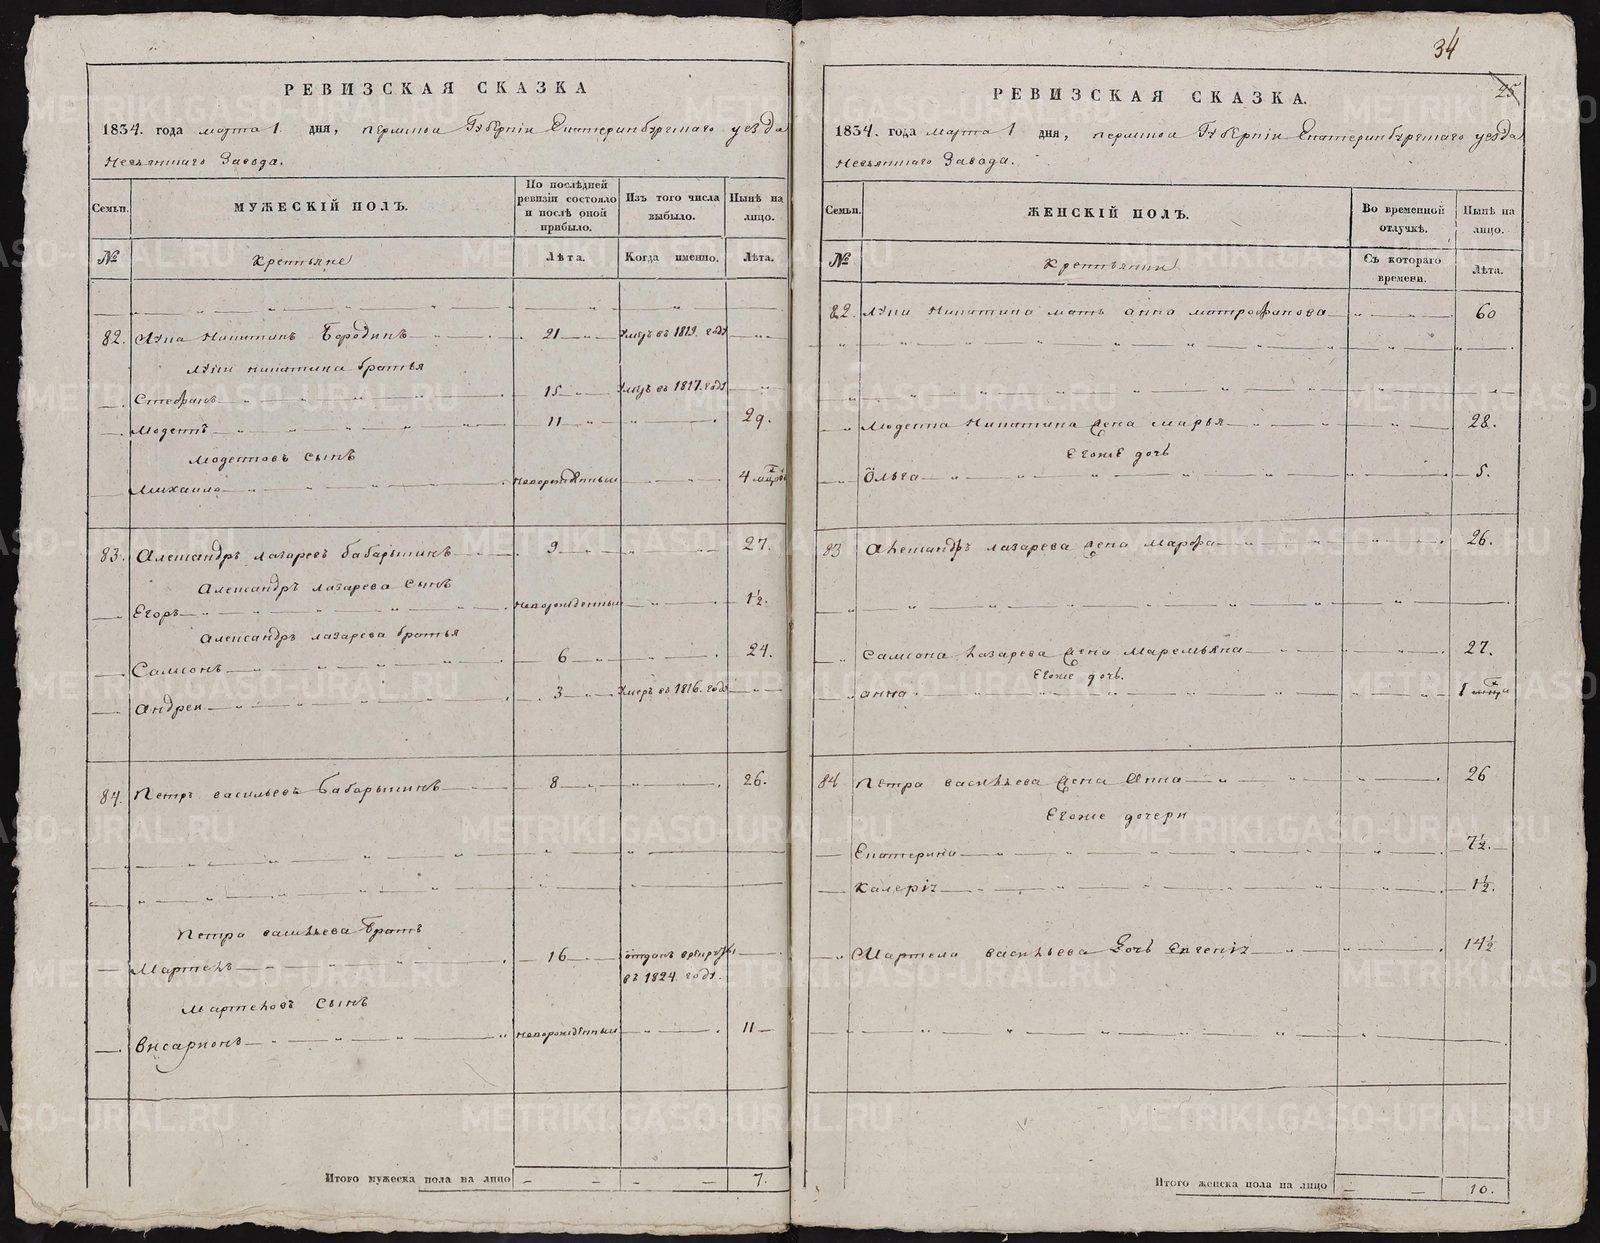 34
РЕВИЗСКАЯ СКАЗКА
1834. года марта 1 дня, пермской Губерніи Екатеринбургскаго уезда
Невьянскаго Завода.
Семьи.
МУЖЕСКІЙ ПОЛЪ.
По послѣдней ревизіи состояло и послѣ оной прибыло.
Изъ того числа выбыло.
Нынѣ на лицо.
№
Крестьяне
Лѣта.
Когда именно.
Лѣта.
82. Лупа Никитинъ Бородинъ 21 Умеръ въ 1819. году
Лупы Никитина братья
Стефанъ 15 Умеръ въ 1817. году
Модестъ 11 29.
Модестовъ сынъ
Михаило новорожденный 4 мѣсяцовъ
83. Александръ лазаревъ бабарыкинъ 9 27.
Александръ лазарева сынъ
Егоръ новорожденный 1½.
Александръ лазарева братья
Самсонъ 6 24.
Андреи 3 Умеръ въ 1816. году
84. Петръ васильевъ бабарыкинъ 8 26.
Петра васильева братъ
Мартелъ 16 отданъ въ рекруты
въ 1824. году.
Мартеловъ сынъ
Висарионъ новорожденный 11
Итого мужеска пола на лицо 7.
25
РЕВИЗСКАЯ СКАЗКА.
1834. года марта 1 дня, пермской Губерніи Екатеринбургскаго уезда
Невьянскаго Завода.
Семьи.
ЖЕНСКІЙ ПОЛЪ.
Во временной отлучкѣ.
Нынѣ на лицо.
№
Крестьянки
Съ котораго времени.
Лѣта.
82. Лупы Никитина мать анна митрофанова 60
Модеста Никитина жена марья 28.
Егоже дочь
Ольга 5.
83 Александръ лазарева жена Марфа 26.
Самсона лазарева жена Маремьяна 27.
Егоже дочь.
анна 1 мѣсяца
84 Петра васильева жена Анна 26
Егоже дочери
Екатерина 7½.
Калерія 1½.
Мартела васильева дочь Евгенія 14½
Итого женска пола на лицо 10.
METRIKI.GASO-URAL.RU